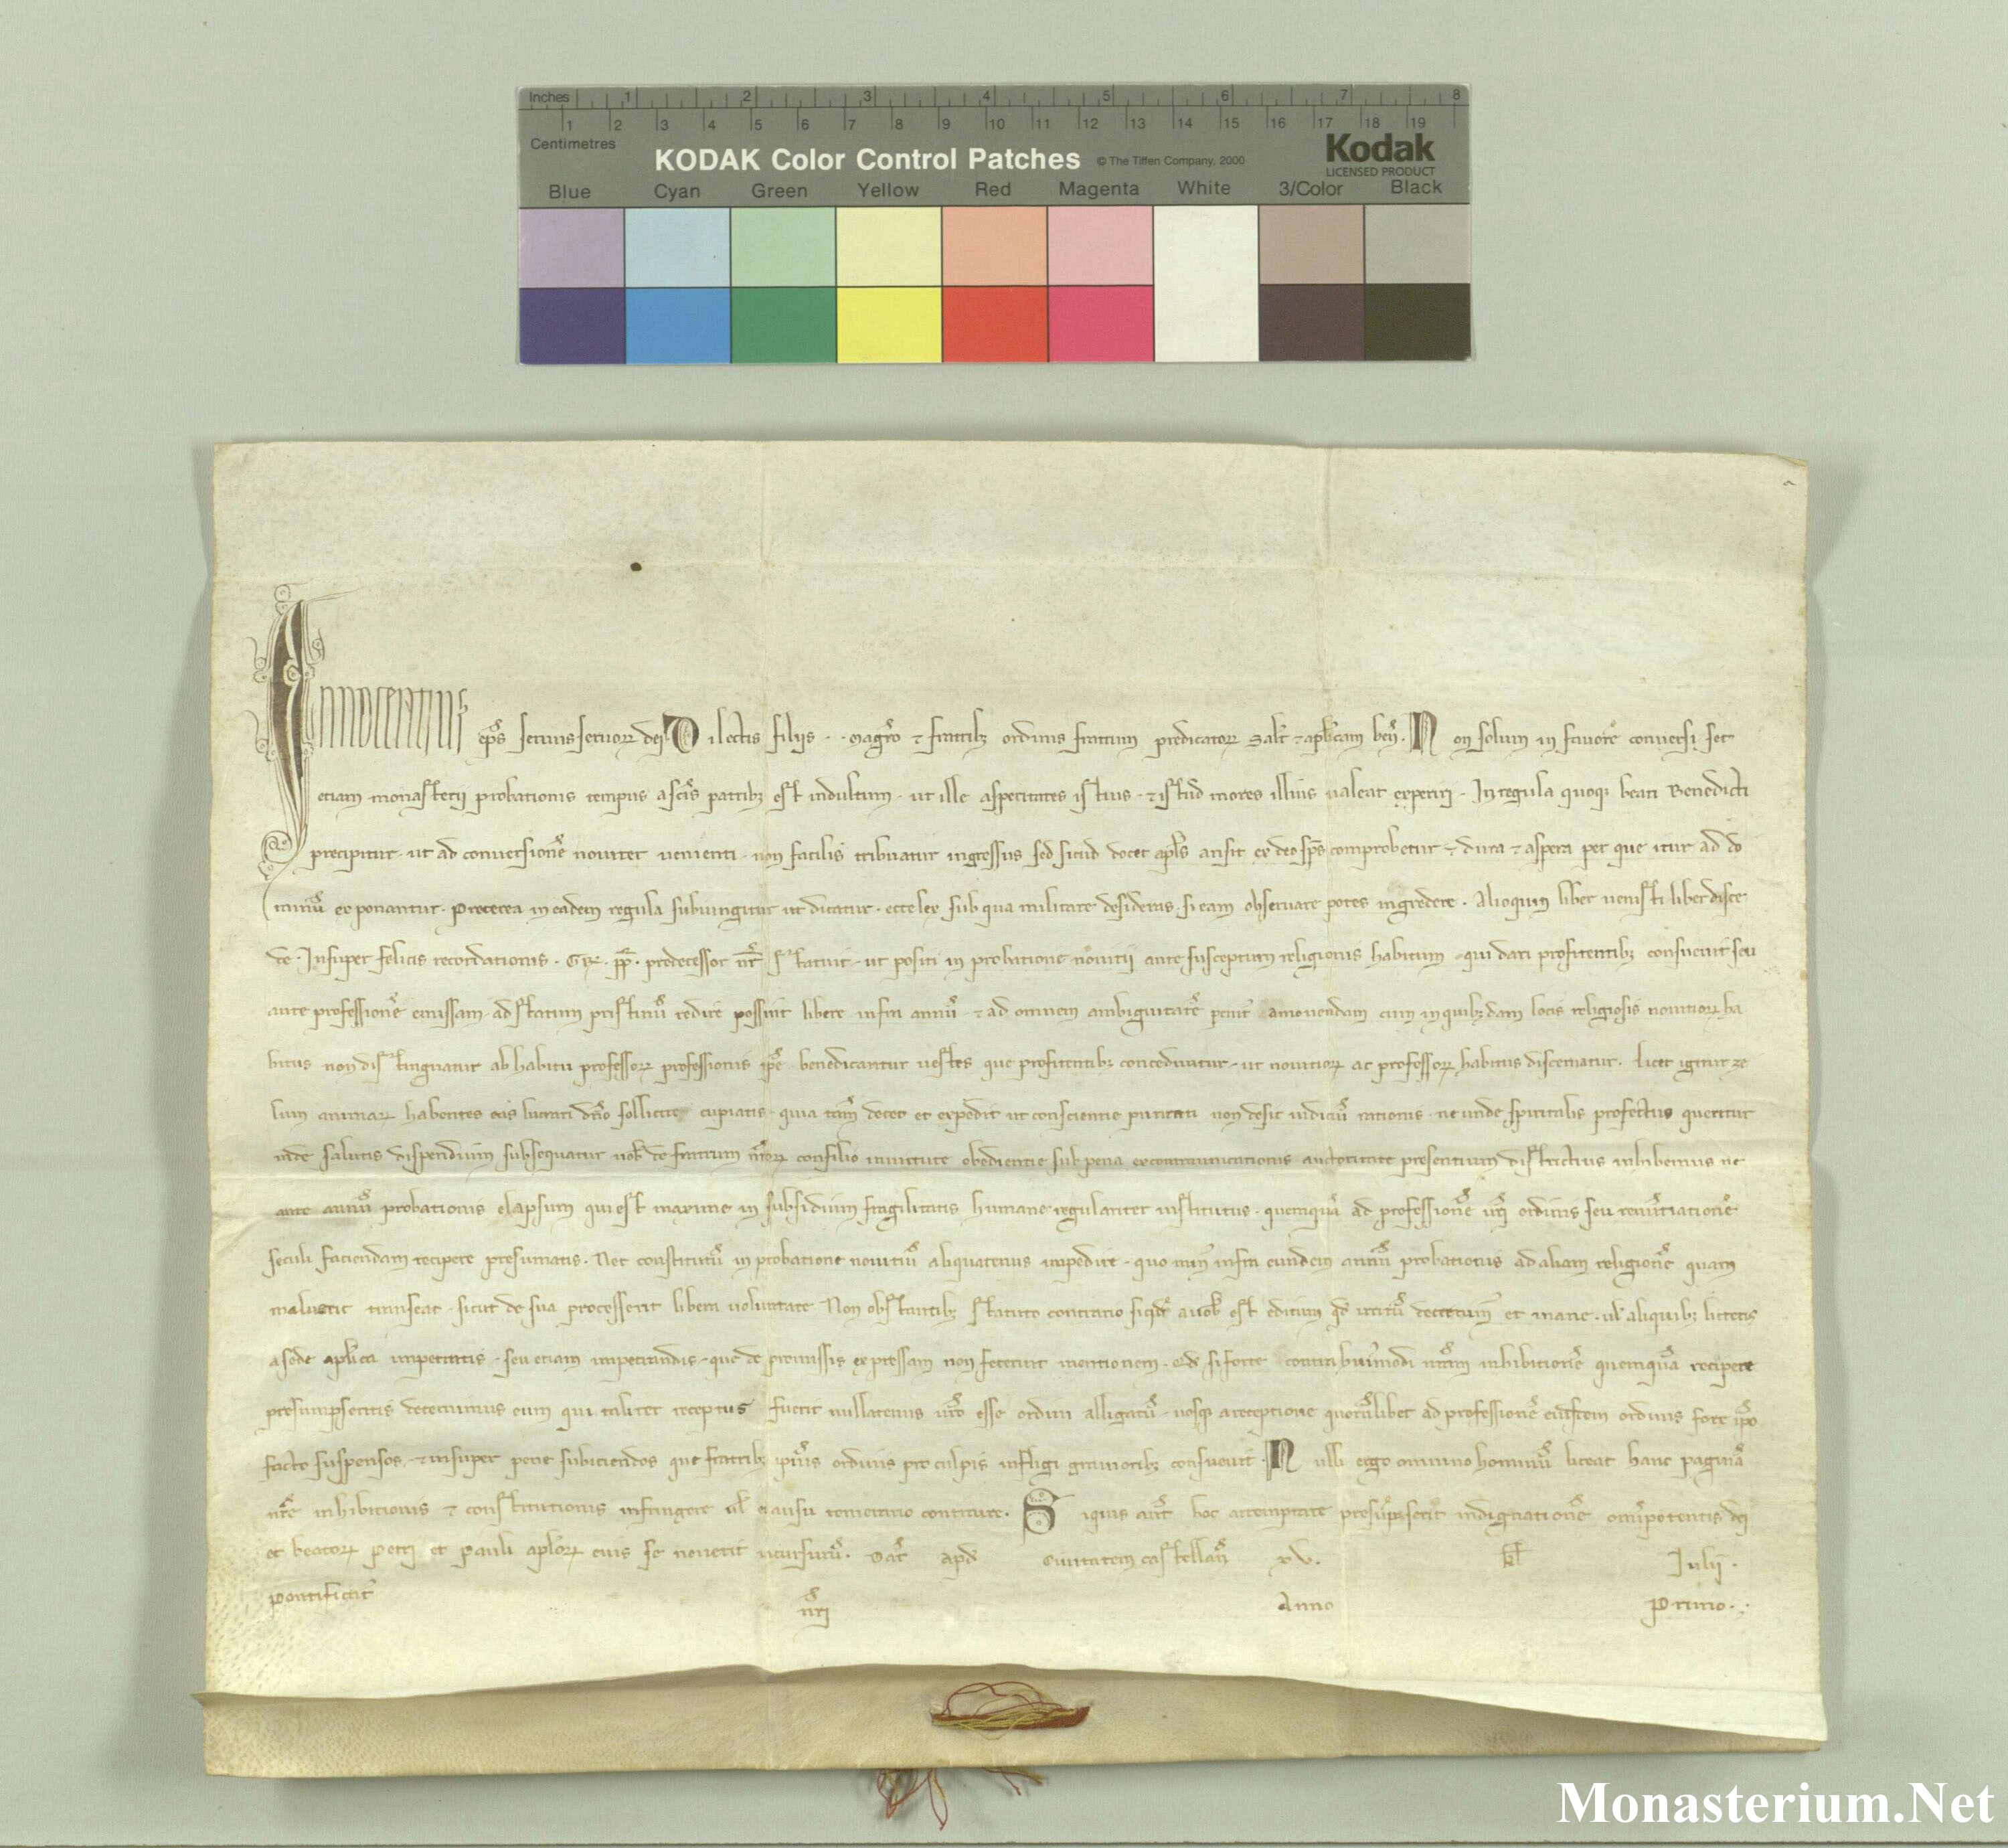 Inches 1 2 3 4 5 6 7 8
1 2 3 4 5 6 7 8 9 10 11 12 13 14 15 16 17 18 19
Centimetres
KODAK Color Control Patches © The Tiffen Company, 2000 Kodak
LICENSED PRODUCT
Blue Cyan Green Yellow Red Magenta White 3/Color Black
Innocentius ep̄s seruus seruoꝝ dei Dilectis filiis . . Magr̄o ⁊ fratribꝫ ordinis fratrum predicatoꝝ salt̄ ⁊ apl̄icam ben̄. Non solum in fauorē conuersi set
etiam monasterii probationis tempus a sc̄is patribꝫ est indultum . ut ille asperitates istius . ⁊ istud mores illius ualeat experiri . In regula quoqꝫ beati Benedicti
precipitur . ut ad conuersionē nouiter uenienti . non facilis tribuatur ingressus sed sicud docet apl̄s an sit ex deo sp̄s comprobetur ⁊ dura ⁊ aspera per que itur ad do
minū exponantur . Preterea in eadem regula subiungitur ut dicatur . ecce lex sub qua militare desideras si eam obseruare potes ingredere . Alioquin liber uenisti liber disce
de . Insuper felicis recordationis . Gꝶ . pp̄ . predecessor nr̄ statuit . ut positi in probatione nouitii ante susceptum religionis habitum . qui dari profitentibꝫ consueuit seu
ante professionē emissam . ad statum pristinū redire possint libere infra annū ⁊ ad omnem ambiguitatē penit᾽ amouendam cum in quibꝫdam locis religiosis nouitioꝝ ha
bitus non distinguatur ab habitu professoꝝ professionis tp̄e benedicantur uestes que profitentibꝫ conceduntur . ut nouitioꝝ ac professoꝝ habitus discernatur . Licet igitur ze
lum animaꝝ habentes eas lucrari dn̄o sollicite cupiatis . quia tam̄ decet et expedit ut conscientie puritati non desit iudiciū rationis . ne unde spiritalis profectus queritur
inde salutis dispendium subsequatur uob̄ de fratrum nr̄oꝝ consilio in uirtute obedientie sub pena excommunicationis auctoritate presentium districtius inhibemus ne
ante annū probationis elapsum qui est maxime in subsidium fragilitatis humane regulariter institutus . quemquā ad professionē ur̄i ordinis seu renūtiationē
seculi faciendam recipere presumatis . Nec constitutū in probatione nouitiū aliquatenus impedire . quo min᾽ infra eundem annū probationis ad aliam religionē quam
maluerit transeat . sicut de sua processerit libera uoluntate Non obstantibꝫ statuto contrario siqd̄ a uob̄ est editum qd̄ irritū decernim᾽ et inane . ul̄ aliquibꝫ litteris
a sede apl̄ica impetratis . seu etiam impetrandis . que de premissis expressam non fecerint mentionem . Qd̄ si forte contra hui᾽modi nr̄am inhibitionē quemquā recipere
presumpseritis decernimus eum qui taliter receptus fuerit nullatenus ur̄o esse ordini alligatū . uosqꝫ a receptione quorūlibet ad professionē eiusdem ordinis fore ip̄o
facto suspensos . ⁊ insuper pene subiciendos que fratribꝫ ip̄ius ordinis pro culpis infligi grauioribꝫ consueuit . Nulli ergo omnino hominū liceat hanc paginā
nr̄e inhibitionis ⁊ constitutionis infringere ul̄ ei ausu temerario contraire . Siquis aut̄ hoc attemptare presūpserit indignationē omīpotentis dei
et beatoꝝ Petri et Pauli apl̄oꝝ eius se nouerit incursurū . Dat̄ apd̄ Ciuitatem castellan̄ xv. kl̄ Iulii .
Pontificat᾽ nr̄i Anno Primo .
Monasterium.Net